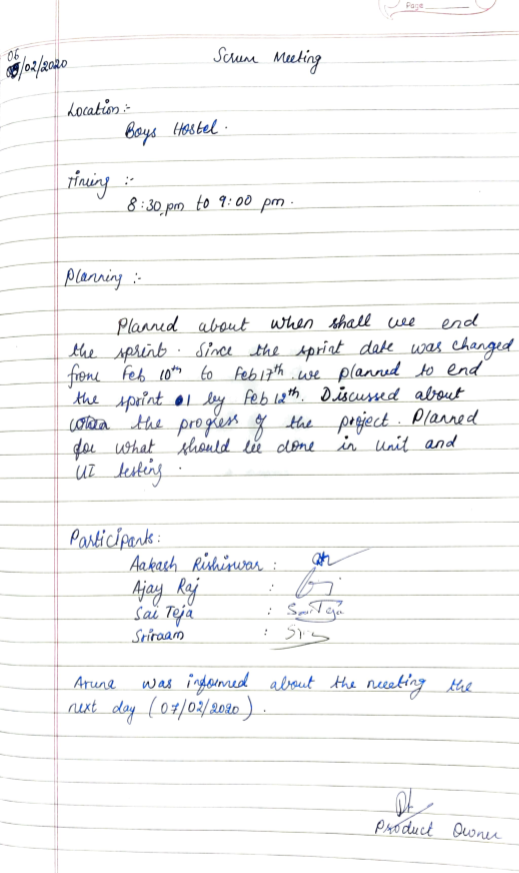 Page
06/02/2020
Scrum Meeting
Location :-
Boys Hostel .
Timing :-
8:30 pm to 9:00 pm .
Planning :-
Planned about when shall we end
the sprint . Since the sprint date was changed
from Feb 10th to Feb 17th we planned to end
the sprint 01 by Feb 12th. Discussed about
the progress of the project . Planned
for what should be done in unit and
UI testing .
Participants :
Aakash Rishiswar :
Ajay Raj :
Sai Teja : Sai Teja
Sriraam :
Aruna was informed about the meeting the
next day (07/02/2020) .
Product Owner